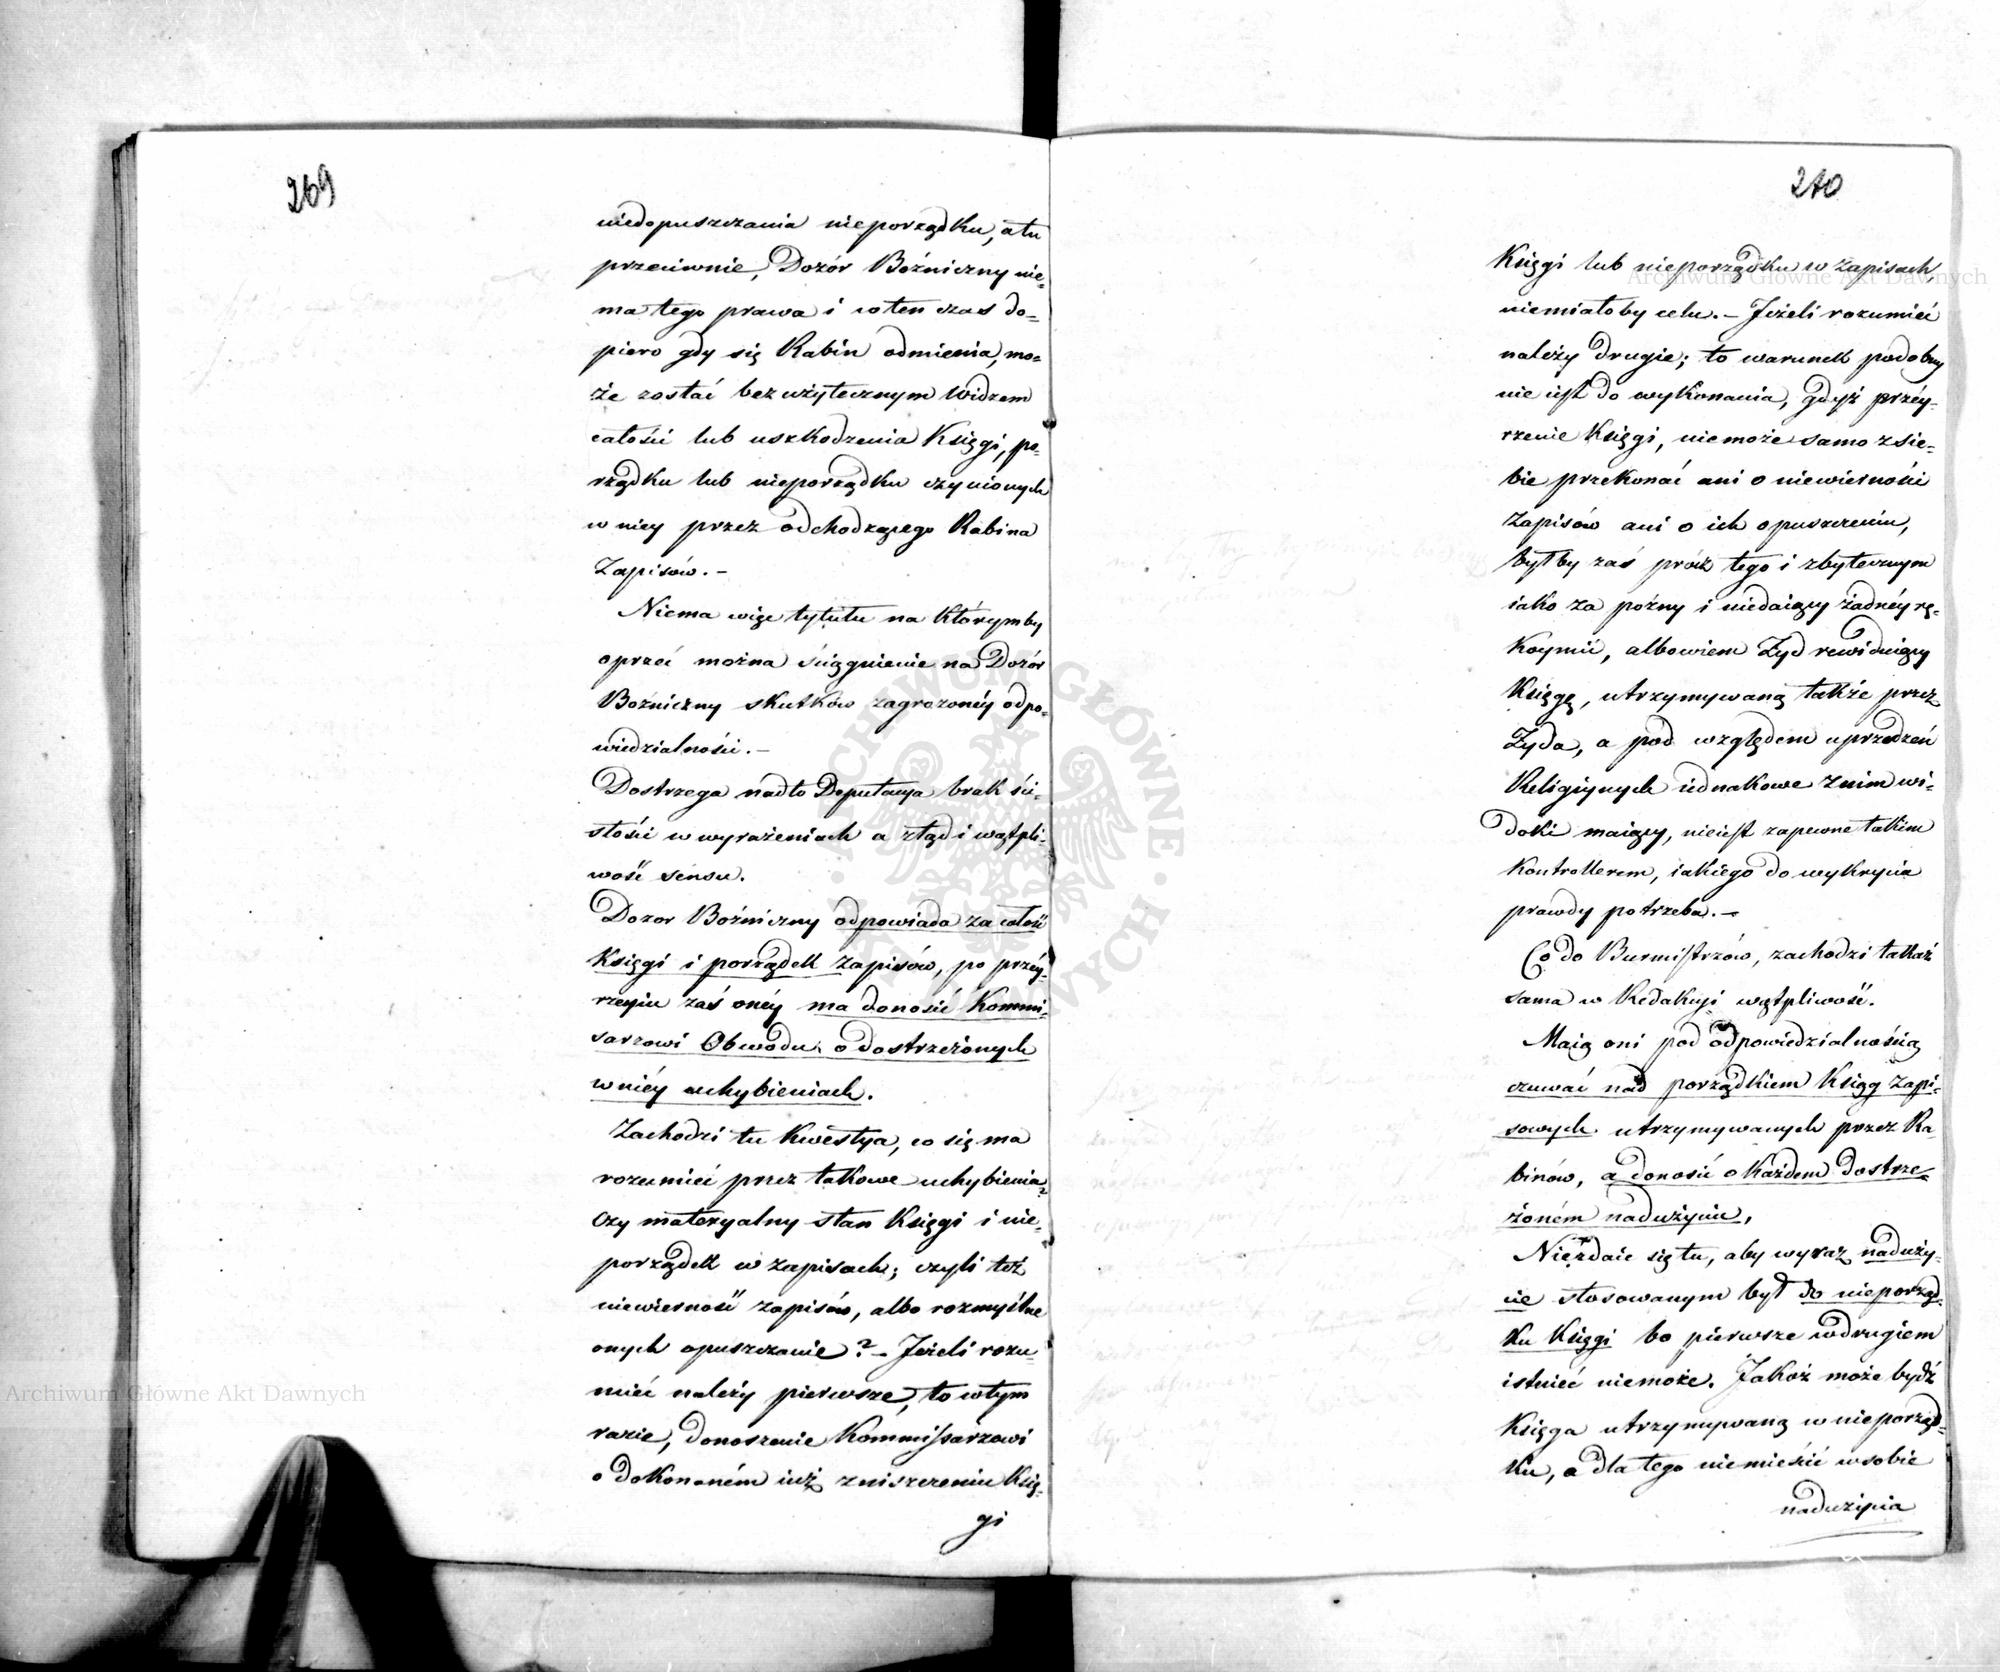 269
niedopuszczania nieporządku, a tu
przeciwnie, Dozór Bożniczny nie-
ma tego prawa i w ten czas do-
piero gdy się Rabin odmienia, mo-
że zostać bezużytecznym widzem
całości lub uszkodzenia Księgi, po-
rządku lub nieporządku czynionych
w niey przez odchodzącego Rabina
Zapisów. –
Niema więc tytułu na którymby
oprzeć można ściągnienie na Dozór
Bożniczny skutków zagrożonéy odpo-
wiedzialności. –
Dostrzega nadto Deputacya brak ści-
słości w wyrażeniach a ztąd i wątpli-
wość sensu.
Dozor Bożniczny odpowiada za całość
Księgi i porządek Zapisów, po przéy-
rzeniu zaś onéy ma donosić Kommi-
sarzowi Obwodu o dostrzeżonych
w niéy uchybieniach.
Zachodzi tu kwestya, co się ma
rozumieć przez takowe uchybienia?
Czy materyalny stan Księgi i nie-
porządek w zapisach; czyli też
niewierność zapisów, albo rozmyślne
onych opuszczenie? – Jeżeli rozu-
mieć należy pierwsze, to w tym
razie, donoszenie Kommissarzowi
o dokonaném iuż zniszczeniu Księ-
gi
210
Księgi lub nieporządku w Zapisach,
niemiałoby celu. – Jeżeli rozumieć
należy drugie; to warunek podobny
nie iest do wykonania, gdyż przéy-
rzenie Księgi, niemoże samo z sie-
bie przekonać ani o niewierności
Zapisów ani o ich opuszczeniu,
byłby zaś prócz tego i zbytecznym
iako za pózny i niedaiący żadnéy rę-
koymii, albowiem Żyd rewiduiący
Księgę, utrzymywaną także przez
Żyda, a pod względem uprzedzeń
Religiynych iednakowe z nim wi-
doki maiący, nieiest zapewne takim
Kontrollerem, iakiego do wykrycia
prawdy potrzeba. –
Co do Burmistrzów, zachodzi takaż
sama w Redakcyi wątpliwość.
Maią oni pod odpowiedzialnością
czuwać nad porządkiem Ksiąg Zapi-
sowych utrzymywanych przez Ra-
binów, a donosić o każdem dostrze-
żoném nadużyciu,
Niezdaie się tu, aby wyraz naduży-
cie stosowanym był do nieporząd-
ku Księgi bo pierwsze w drugiem
istnieć niemoże. Jakoż może bydź
Księga utrzymywaną w nieporząd-
ku, a dla tego niemieścić w sobie
nadużycia
Archiwum Główne Akt Dawnych
Archiwum Główne Akt Dawnych
ARCHIWUM GŁÓWNE AKT DAWNYCH